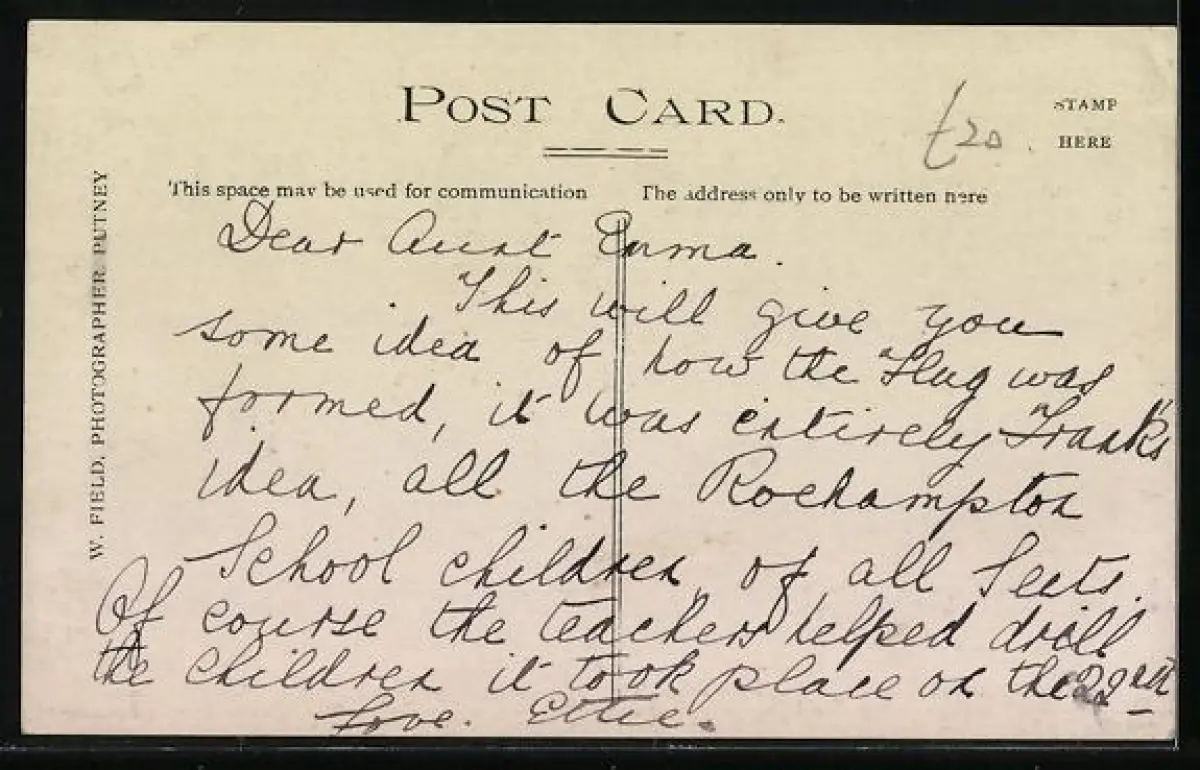 POST CARD.
£20.
STAMP
HERE
This space may be used for communication
The address only to be written here
W. FIELD, PHOTOGRAPHER PUTNEY
Dear Aunt Emma.
This will give you
some idea of how the Flag was
formed, it was entirely Frank's
idea, all the Roehampton
School children of all Sects.
Of course the teachers helped drill
the children it took place on the 22nd
Love. Ettie.